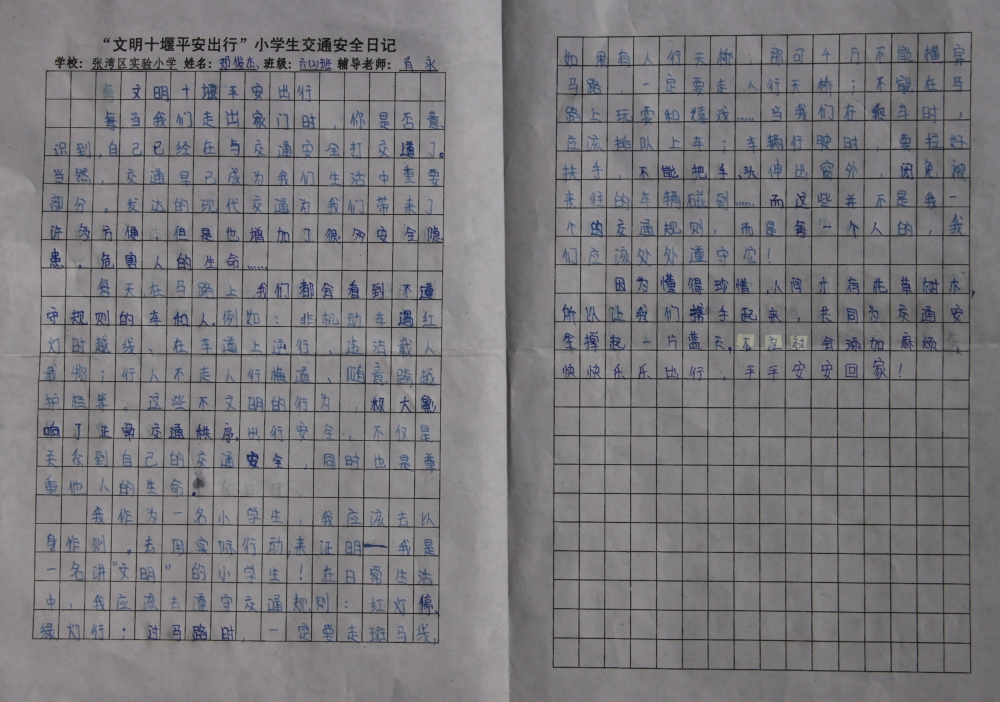 “文明十堰平安出行”小学生交通安全日记
学校：张湾区实验小学 姓名：邓俊杰 班级：六(2)班 辅导老师：肖永
文明十堰平安出行
每当我们走出家门时，你是否意
识到，自己已经在与交通安全打交道了。
当然，交通早已成为我们生活中重要
部分。发达的现代交通为我们带来了
许多方便，但是也增加了很多安全隐
患，危害人的生命……
每天在马路上，我们都会看到不遵
守规则的车和人。例如：非机动车遇红
灯时越线、在车道上逆行、违法载人
载物；行人不走人行横道、随意跨越
护栏等。这些不文明的行为，极大影
响了正常交通秩序。出行安全，不仅是
关系到自己的交通安全，同时也是尊
重他人的生命。
我作为一名小学生，我应该去以
身作则。去用实际行动来证明——我是
一名讲“文明”的小学生！在日常生活
中，我应该去遵守交通规则：红灯停、
绿灯行；过马路时，一定要走斑马线，
如果有人行天桥；那可千万不能横穿
马路，一定要走人行天桥；不能在马
路上玩耍和嬉戏……当我们在乘车时，
应该排队上车；车辆行驶时，要拉好
扶手，不能把手、头伸出窗外，因免被
来往的车辆碰到……而这些并不是我一
个的交通规则，而是每一个人的，我
们应该处处遵守它！
因为懂得珍惜，人间才有花草树木，
所以让我们携手起来，共同为交通安
全撑起一片蓝天。不及社会添加麻烦，
快快乐乐出行，平平安安回家！